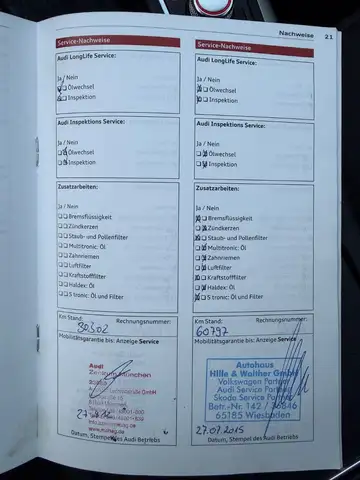 Nachweise 21
Service-Nachweise
Audi LongLife Service:
Ja / Nein
Ölwechsel
Inspektion
Audi Inspektions Service:
Ja / Nein
Ölwechsel
Inspektion
Zusatzarbeiten:
Ja / Nein
Bremsflüssigkeit
Zündkerzen
Staub- und Pollenfilter
Multitronic: Öl
Zahnriemen
Luftfilter
Kraftstofffilter
Haldex: Öl
S tronic: Öl und Filter
Km Stand: Rechnungsnummer:
30302
Mobilitätsgarantie bis: Anzeige Service
Audi
Zentrum München
Datum, Stempel des Audi Betriebs
Service-Nachweise
Audi LongLife Service:
Ja / Nein
Ölwechsel
Inspektion
Audi Inspektions Service:
Ja / Nein
Ölwechsel
Inspektion
Zusatzarbeiten:
Ja / Nein
Bremsflüssigkeit
Zündkerzen
Staub- und Pollenfilter
Multitronic: Öl
Zahnriemen
Luftfilter
Kraftstofffilter
Haldex: Öl
S tronic: Öl und Filter
Km Stand: Rechnungsnummer:
60797
Mobilitätsgarantie bis: Anzeige Service
Autohaus
Hille & Walther GmbH
Volkswagen Partner
Audi Service Partner
Skoda Service Partner
Betr.-Nr. 142 / 36846
65185 Wiesbaden
27.07.2015
Datum, Stempel des Audi Betriebs